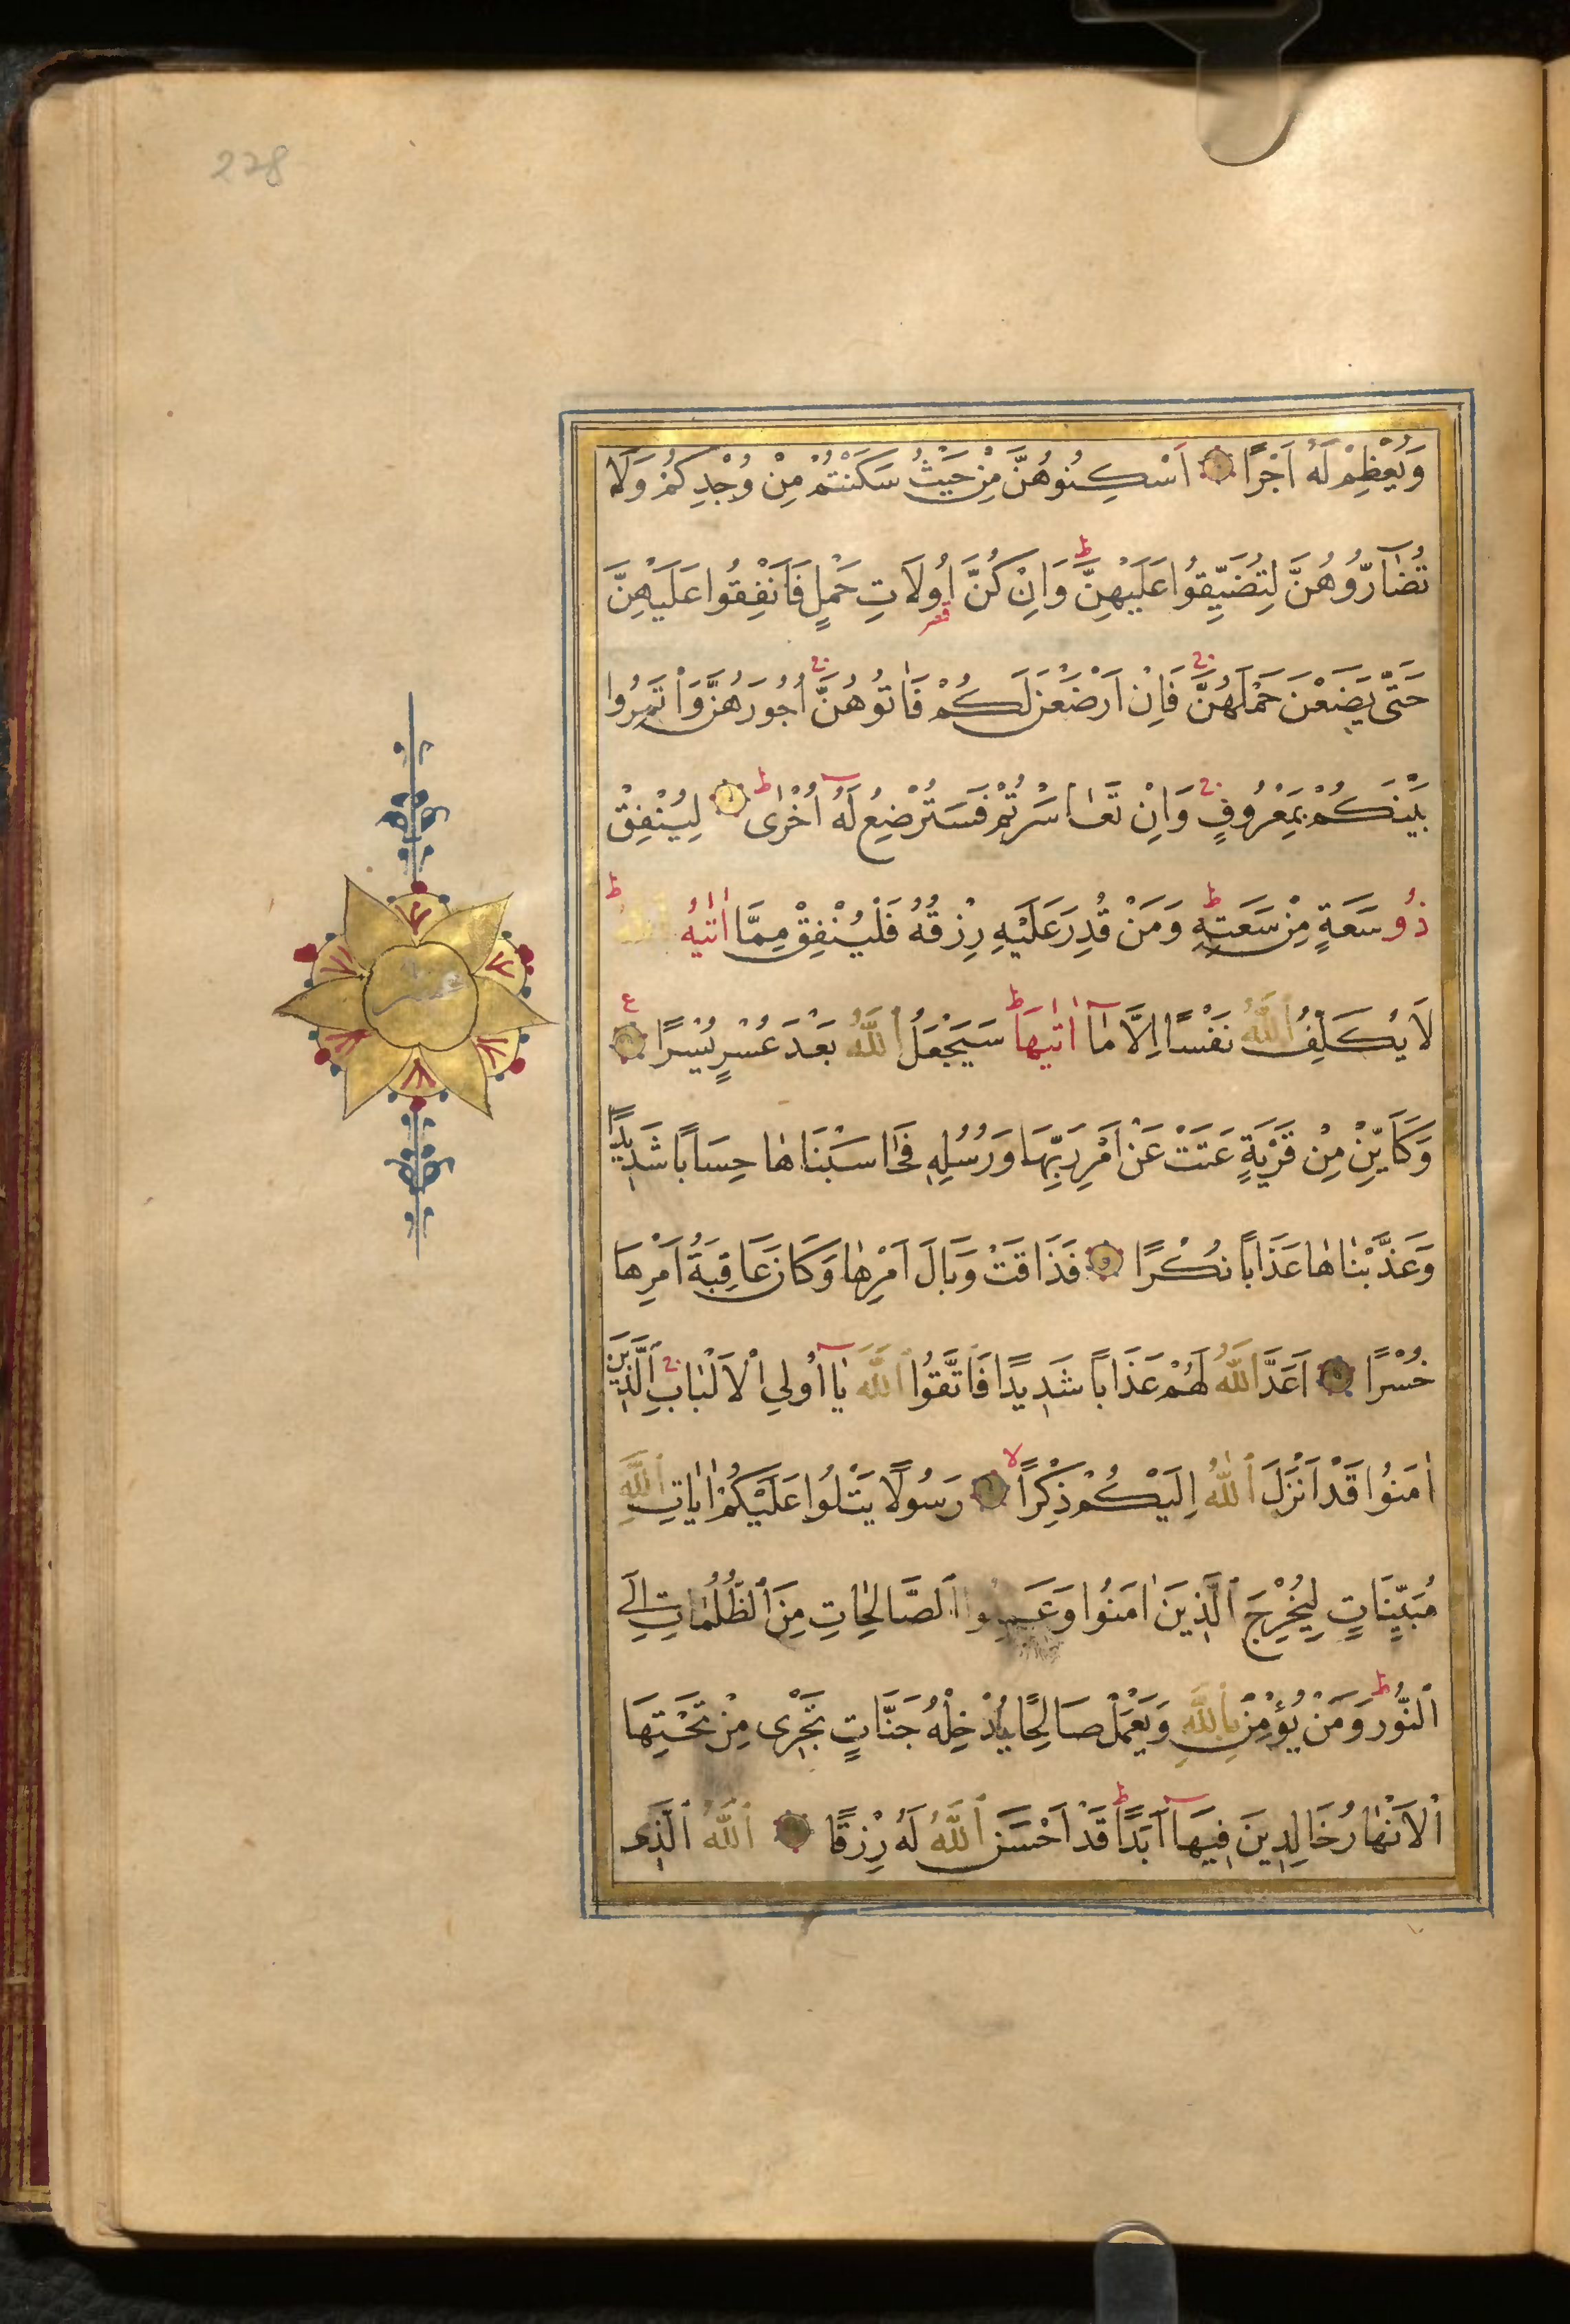 228
وَيُعْظِمْ لَهُ اَجْرًا اَسْكِنُوهُنَّ مِنْ حَيْثُ سَكَنْتُمْ مِنْ وُجْدِكُمْ وَلَا
تُضَآرُّوهُنَّ لِتُضَيِّقُوا عَلَيْهِنَّ ط وَاِنْ كُنَّ اُولَاتِ حَمْلٍ فَاَنْفِقُوا عَلَيْهِنَّ
حَتّٰى يَضَعْنَ حَمْلَهُنَّ ج فَاِنْ اَرْضَعْنَ لَكُمْ فَاٰتُوهُنَّ ج اُجُورَهُنَّ وَاْتَمِرُوا
بَيْنَكُمْ بِمَعْرُوفٍ ج وَاِنْ تَعَاسَرْتُمْ فَسَتُرْضِعُ لَهُ اُخْرٰى ط لِيُنْفِقْ
ذُو سَعَةٍ مِنْ سَعَتِهِ ط وَمَنْ قُدِرَ عَلَيْهِ رِزْقُهُ فَلْيُنْفِقْ مِمَّا اٰتٰيهُ اللّٰهُ ط
لَا يُكَلِّفُ اللّٰهُ نَفْسًا اِلَّا مَآ اٰتٰيهَا ط سَيَجْعَلُ اللّٰهُ بَعْدَ عُسْرٍ يُسْرًا ع
وَكَاَيِّنْ مِنْ قَرْيَةٍ عَتَتْ عَنْ اَمْرِ رَبِّهَا وَرُسُلِهِ فَحَاسَبْنَاهَا حِسَابًا شَدِيدًا
وَعَذَّبْنَاهَا عَذَابًا نُكْرًا فَذَاقَتْ وَبَالَ اَمْرِهَا وَكَانَ عَاقِبَةُ اَمْرِهَا
خُسْرًا اَعَدَّ اللّٰهُ لَهُمْ عَذَابًا شَدِيدًا فَاتَّقُوا اللّٰهَ يَآ اُولِي الْاَلْبَابِ ج الَّذِينَ
اٰمَنُوا قَدْ اَنْزَلَ اللّٰهُ اِلَيْكُمْ ذِكْرًا لا رَسُولًا يَتْلُوا عَلَيْكُمْ اٰيَاتِ اللّٰهِ
مُبَيِّنَاتٍ لِيُخْرِجَ الَّذِينَ اٰمَنُوا وَعَمِلُوا الصَّالِحَاتِ مِنَ الظُّلُمَاتِ اِلَى
النُّورِ ط وَمَنْ يُؤْمِنْ بِاللّٰهِ وَيَعْمَلْ صَالِحًا يُدْخِلْهُ جَنَّاتٍ تَجْرِى مِنْ تَحْتِهَا
الْاَنْهَارُ خَالِدِينَ فِيهَآ اَبَدًا ط قَدْ اَحْسَنَ اللّٰهُ لَهُ رِزْقًا اَللّٰهُ الَّذِى